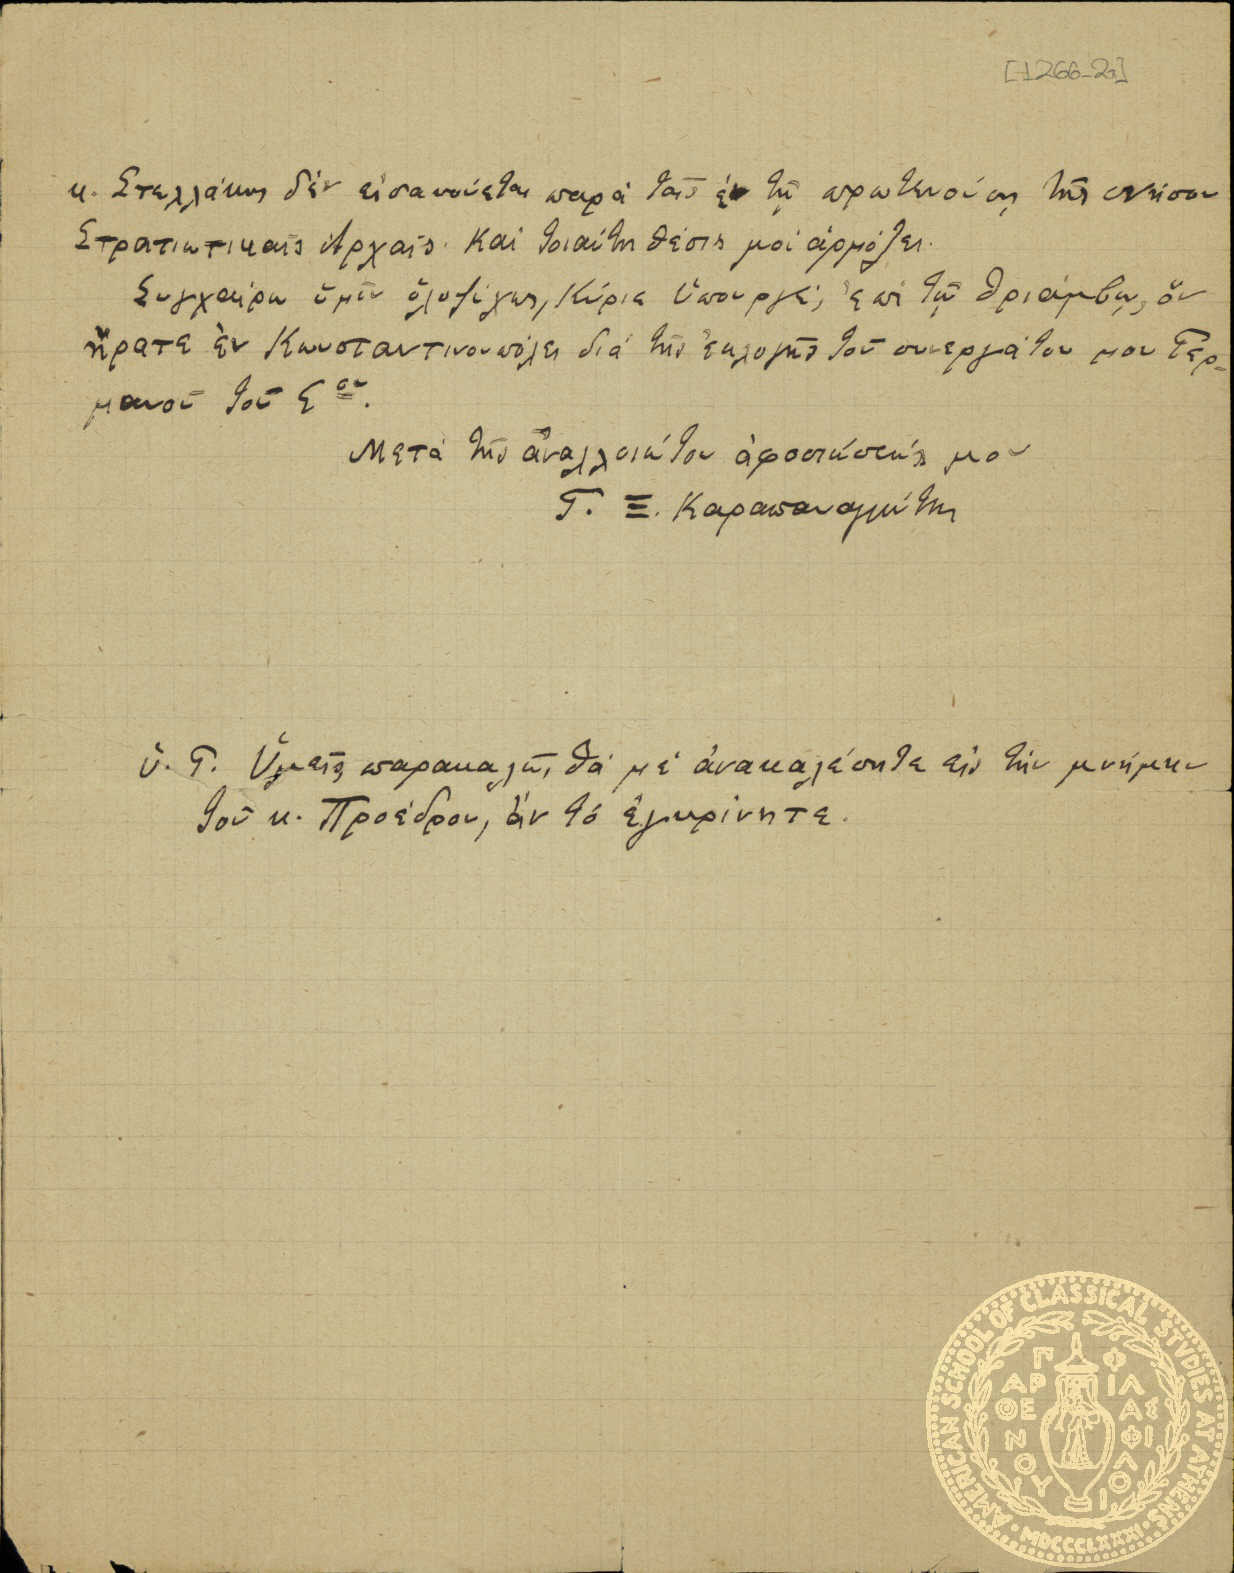 [1266-2a]
κ. Στελλάκης δὲν εἰσακούεται παρὰ ταῖς ἐν τῇ πρωτευούσῃ τῆς νήσου
Στρατιωτικαῖς Ἀρχαῖς. Καὶ τοιαύτη θέσις μοὶ ἁρμόζει.
Συγχαίρω ὑμῖν ὁλοψύχως, Κύριε Ὑπουργέ, ἐπὶ τῷ θριάμβῳ, ὃν
ἤρατε ἐν Κωνσταντινουπόλει διὰ τῆς ἐκλογῆς τοῦ συνεργάτου μου Γερ-
μανοῦ τοῦ Ε<sup>ου</sup>.
Μετὰ τῆς ἀναλλοιώτου ἀφοσιώσεώς μου
Γ. Ξ. Καραπαναγιώτης
Ὑ. Γ. Ὑμεῖς παρακαλῶ, θὰ μὲ ἀνακαλέσητε εἰς τὴν μνήμην
τοῦ κ. Προέδρου, ἂν τὸ ἐγκρίνητε.
AMERICAN SCHOOL OF CLASSICAL STVDIES AT ATHENS
ΠΑΡΘΕΝΟΥ ΦΙΛΑΣ ΦΙΛΟΙ
MDCCCLXXXI